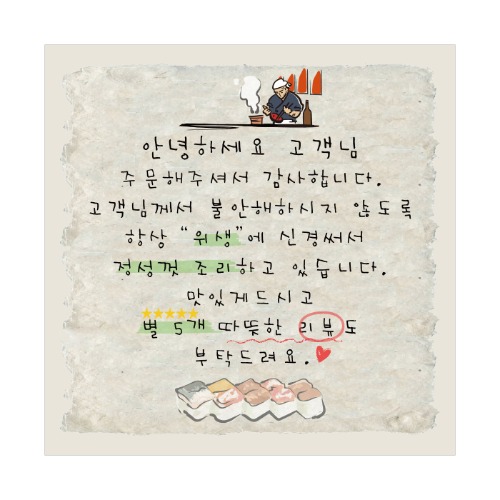 안녕하세요 고객님
주문해주셔서 감사합니다.
고객님께서 불안해하시지 않도록
항상 "위생"에 신경써서
정성껏 조리하고 있습니다.
맛있게드시고
별 5개 따뜻한 리뷰도
부탁드려요.